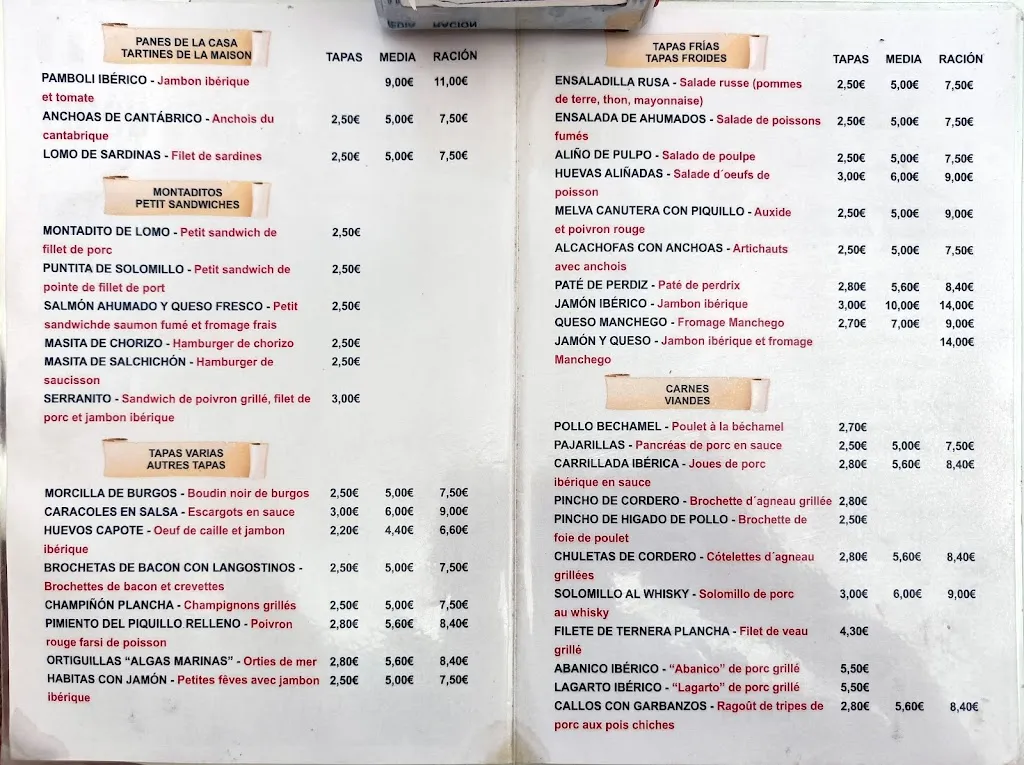 PANES DE LA CASA
TARTINES DE LA MAISON
TAPAS MEDIA RACIÓN
PAMBOLI IBÉRICO - Jambon ibérique 9,00€ 11,00€
et tomate
ANCHOAS DE CANTÁBRICO - Anchois du 2,50€ 5,00€ 7,50€
cantabrique
LOMO DE SARDINAS - Filet de sardines 2,50€ 5,00€ 7,50€
MONTADITOS
PETIT SANDWICHES
MONTADITO DE LOMO - Petit sandwich de 2,50€
fillet de porc
PUNTITA DE SOLOMILLO - Petit sandwich de 2,50€
pointe de fillet de port
SALMÓN AHUMADO Y QUESO FRESCO - Petit 2,50€
sandwichde saumon fumé et fromage frais
MASITA DE CHORIZO - Hamburger de chorizo 2,50€
MASITA DE SALCHICHÓN - Hamburger de 2,50€
saucisson
SERRANITO - Sandwich de poivron grillé, filet de 3,00€
porc et jambon ibérique
TAPAS VARIAS
AUTRES TAPAS
MORCILLA DE BURGOS - Boudin noir de burgos 2,50€ 5,00€ 7,50€
CARACOLES EN SALSA - Escargots en sauce 3,00€ 6,00€ 9,00€
HUEVOS CAPOTE - Oeuf de caille et jambon 2,20€ 4,40€ 6,60€
ibérique
BROCHETAS DE BACON CON LANGOSTINOS - 2,50€ 5,00€ 7,50€
Brochettes de bacon et crevettes
CHAMPIÑÓN PLANCHA - Champignons grillés 2,50€ 5,00€ 7,50€
PIMIENTO DEL PIQUILLO RELLENO - Poivron 2,80€ 5,60€ 8,40€
rouge farsi de poisson
ORTIGUILLAS “ALGAS MARINAS” - Orties de mer 2,80€ 5,60€ 8,40€
HABITAS CON JAMÓN - Petites fêves avec jambon 2,50€ 5,00€ 7,50€
ibérique
MEDIA RACIÓN
TAPAS FRÍAS
TAPAS FROIDES
TAPAS MEDIA RACIÓN
ENSALADILLA RUSA - Salade russe (pommes 2,50€ 5,00€ 7,50€
de terre, thon, mayonnaise)
ENSALADA DE AHUMADOS - Salade de poissons 2,50€ 5,00€ 7,50€
fumés
ALIÑO DE PULPO - Salado de poulpe 2,50€ 5,00€ 7,50€
HUEVAS ALIÑADAS - Salade d´oeufs de 3,00€ 6,00€ 9,00€
poisson
MELVA CANUTERA CON PIQUILLO - Auxide 2,50€ 5,00€ 9,00€
et poivron rouge
ALCACHOFAS CON ANCHOAS - Artichauts 2,50€ 5,00€ 7,50€
avec anchois
PATÉ DE PERDIZ - Paté de perdrix 2,80€ 5,60€ 8,40€
JAMÓN IBÉRICO - Jambon ibérique 3,00€ 10,00€ 14,00€
QUESO MANCHEGO - Fromage Manchego 2,70€ 7,00€ 9,00€
JAMÓN Y QUESO - Jambon ibérique et fromage 14,00€
Manchego
CARNES
VIANDES
POLLO BECHAMEL - Poulet à la béchamel 2,70€
PAJARILLAS - Pancréas de porc en sauce 2,50€ 5,00€ 7,50€
CARRILLADA IBÉRICA - Joues de porc 2,80€ 5,60€ 8,40€
ibérique en sauce
PINCHO DE CORDERO - Brochette d´agneau grillée 2,80€
PINCHO DE HIGADO DE POLLO - Brochette de 2,50€
foie de poulet
CHULETAS DE CORDERO - Cótelettes d´agneau 2,80€ 5,60€ 8,40€
grillées
SOLOMILLO AL WHISKY - Solomillo de porc 3,00€ 6,00€ 9,00€
au whisky
FILETE DE TERNERA PLANCHA - Filet de veau 4,30€
grillé
ABANICO IBÉRICO - “Abanico” de porc grillé 5,50€
LAGARTO IBÉRICO - “Lagarto” de porc grillé 5,50€
CALLOS CON GARBANZOS - Ragoût de tripes de 2,80€ 5,60€ 8,40€
porc aux pois chiches